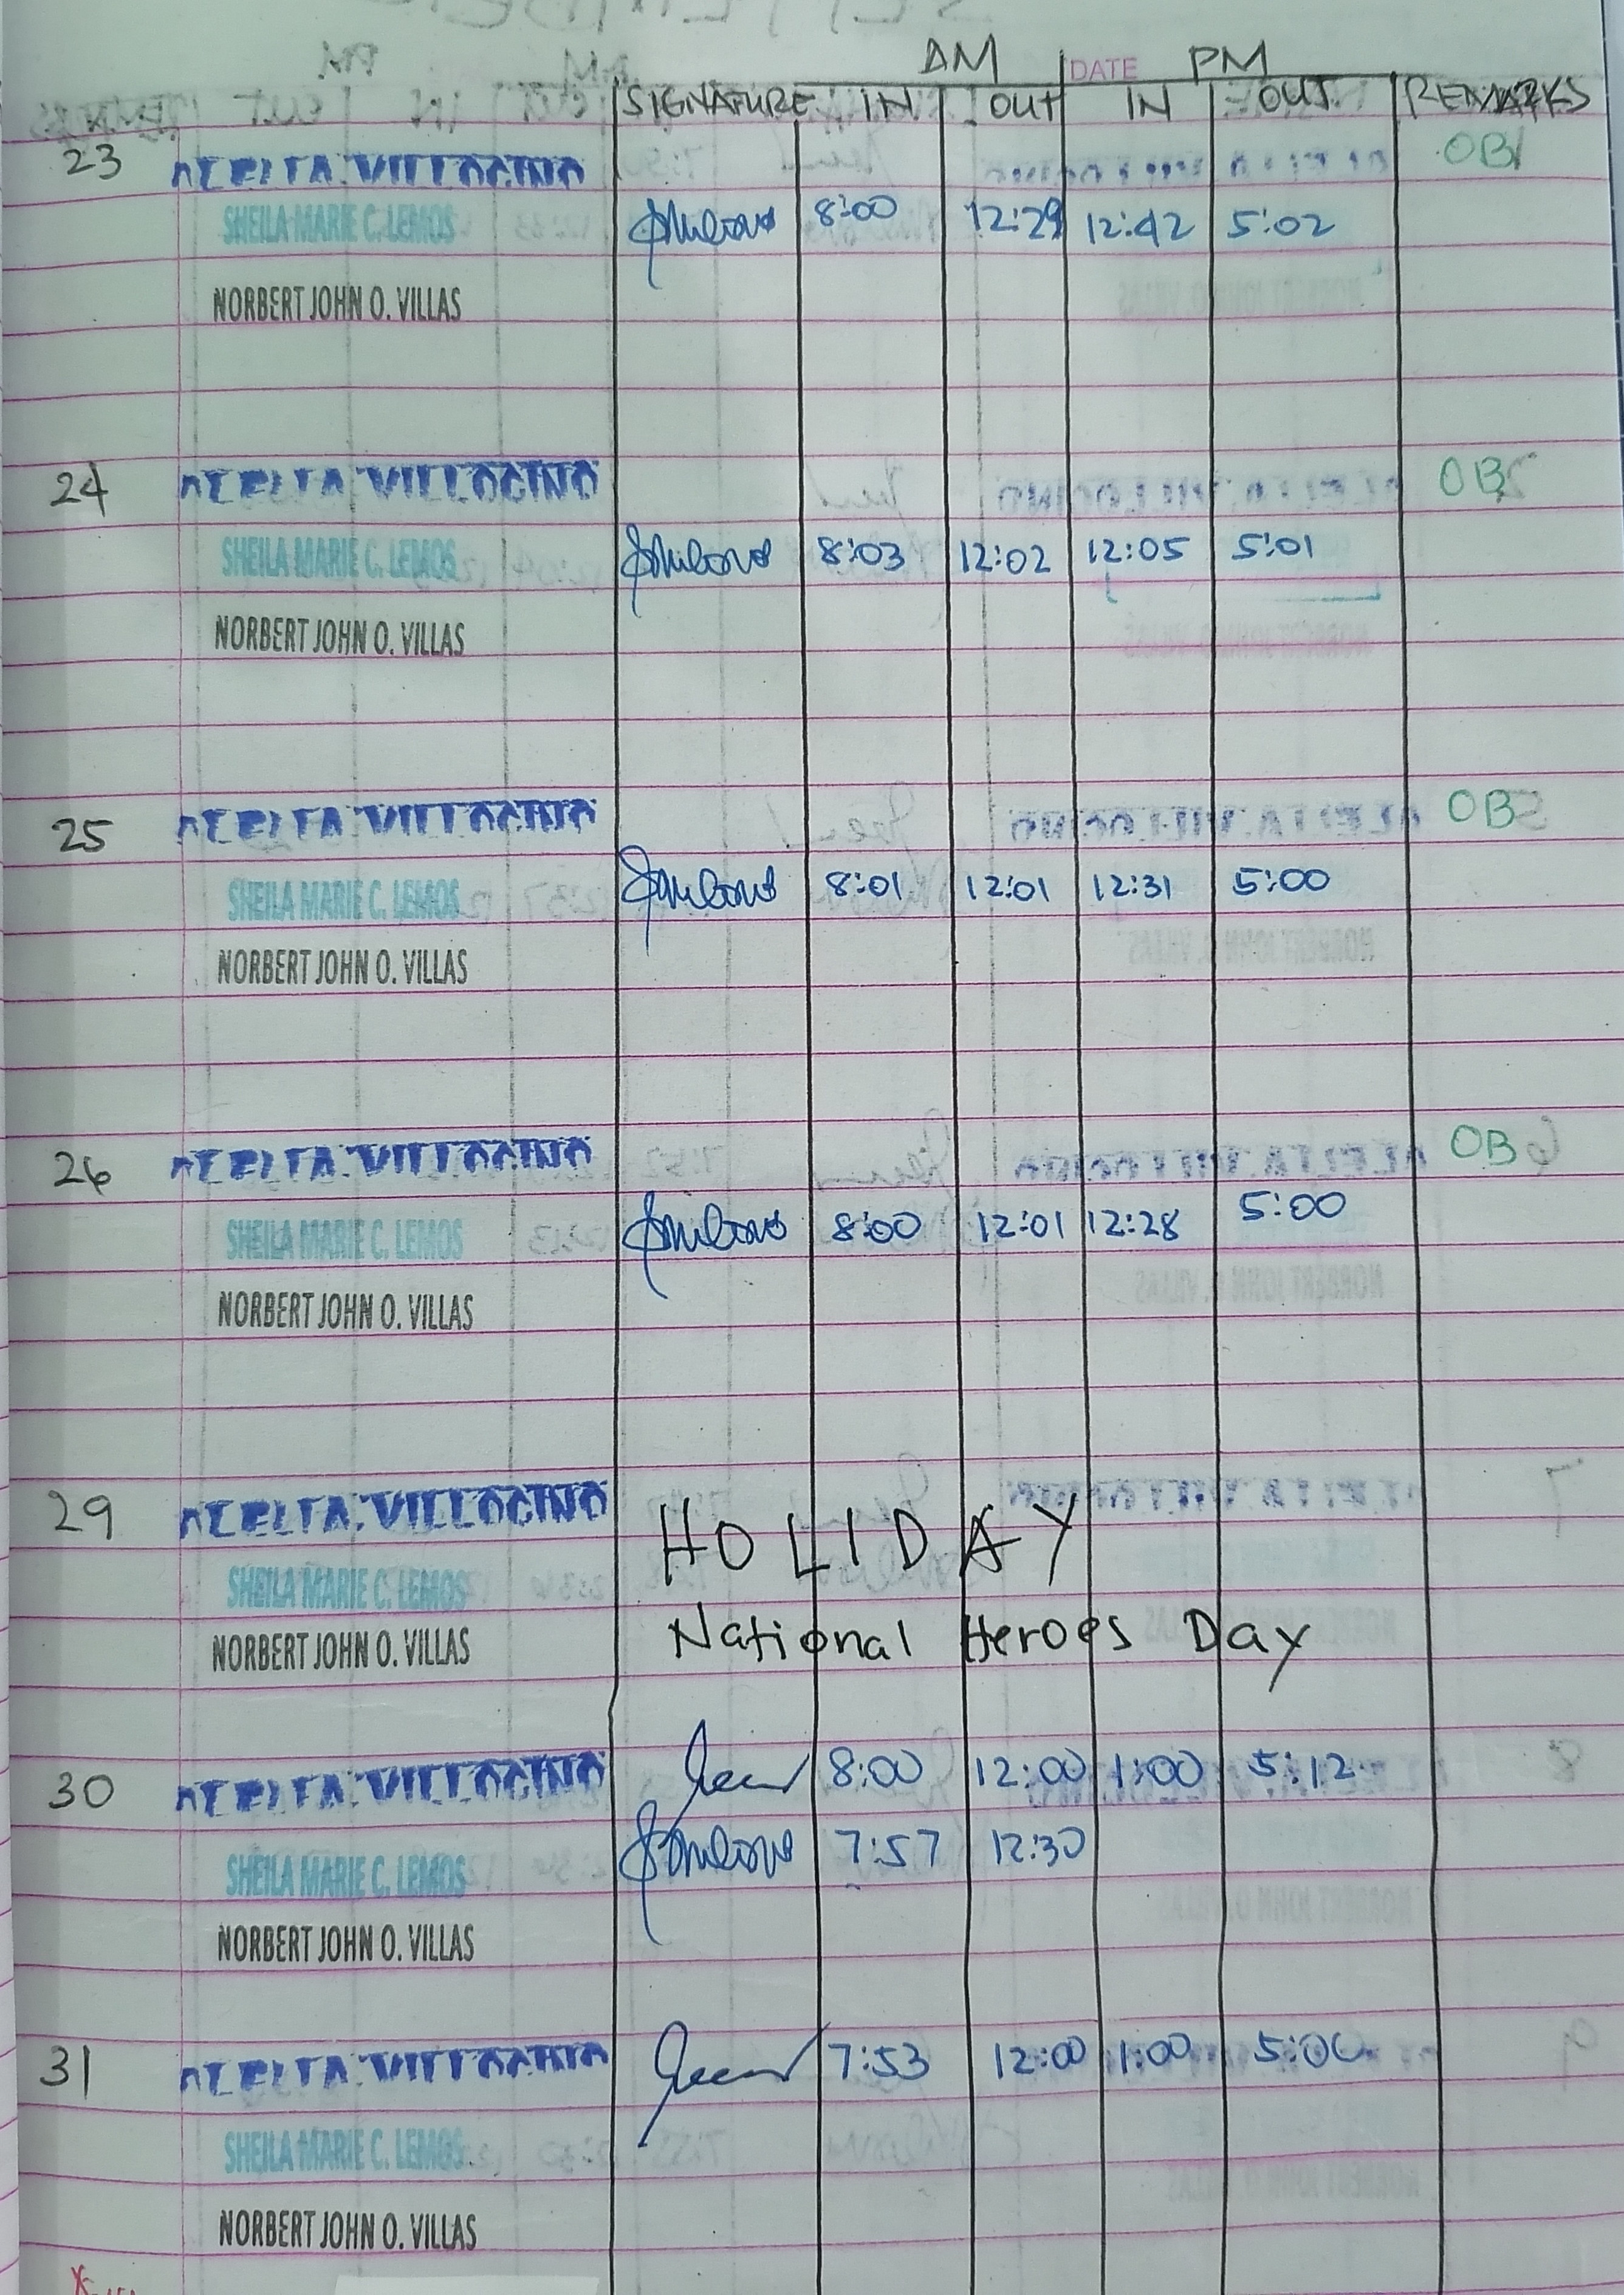 AM DATE PM
SIGNATURE IN OUT IN OUT REMARKS
23 VILLOCINO OB
SHEILA MARIE C. LEMOS 8:00 12:29 12:42 5:02
NORBERT JOHN O. VILLAS
24 VILLOCINO OB
SHEILA MARIE C. LEMOS 8:03 12:02 12:05 5:01
NORBERT JOHN O. VILLAS
25 VILLOCINO OB
SHEILA MARIE C. LEMOS 8:01 12:01 12:31 5:00
NORBERT JOHN O. VILLAS
26 VILLOCINO OB
SHEILA MARIE C. LEMOS 8:00 12:01 12:28 5:00
NORBERT JOHN O. VILLAS
29 VILLOCINO HOLIDAY
SHEILA MARIE C. LEMOS
NORBERT JOHN O. VILLAS National Heroes Day
30 VILLOCINO 8:00 12:00 1:00 5:12
SHEILA MARIE C. LEMOS 7:57 12:30
NORBERT JOHN O. VILLAS
31 VILLOCINO 7:53 12:00 1:00
SHEILA MARIE C. LEMOS
NORBERT JOHN O. VILLAS